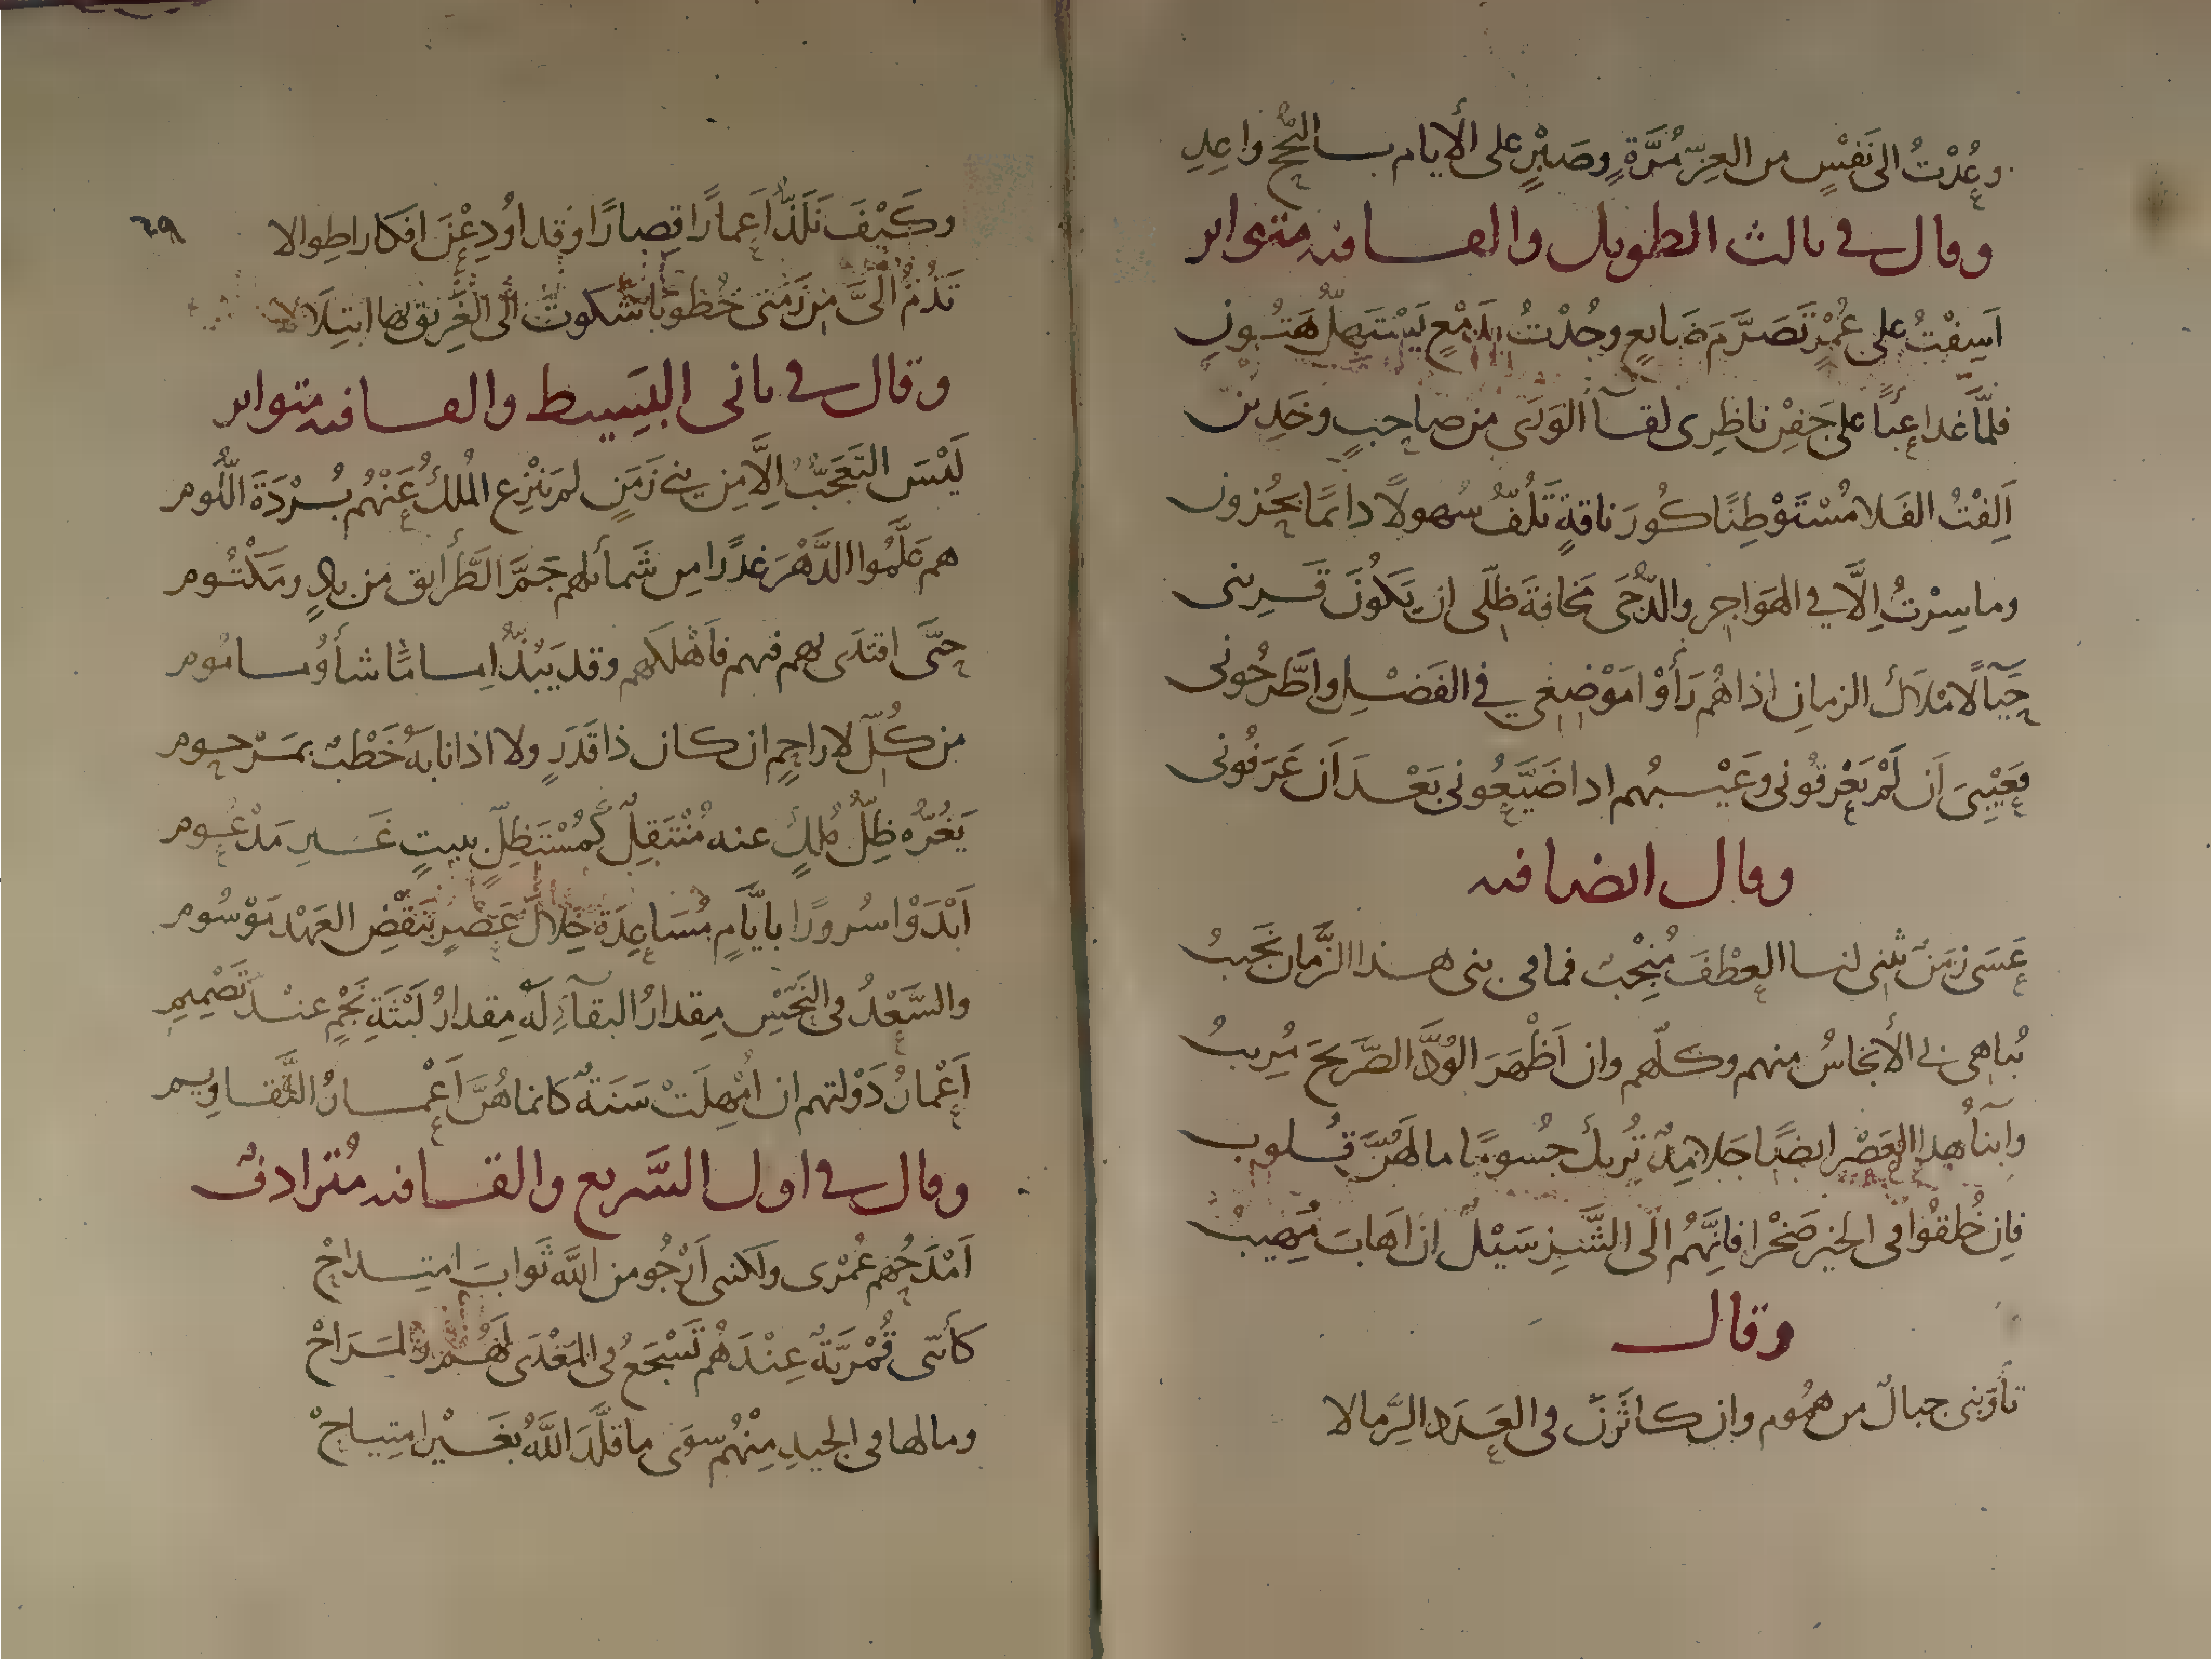 وعُدْتُ الى نَفسٍ من العِزّ مُرَّةٍ وصَبْرٍ على الأيام بالنُّجْح واعِدِ
وقال في ثالث الطويل والقافيه متواتر
اَسِفْتُ على عُمْرٍ تَصَرَّمَ ضَايعٍ وجُدْتُ بدَمْعٍ يَسْتَهِلُّ هَتُونِ
فلمَّا غدا عِبأً على جَفْن ناظِرى لقآ الوَرَى من صاحبٍ وخَدِين
اَلِفْتُ الفَلا مُسْتَوْطِنًا كُورَ ناقةٍ تَلُفُّ سُهولًا دائمًا بحُزون
وما سِرْتُ اِلَّا في الهَوَاجِر والدُّجَى مَخافةَ ظِلّى ان يَكُونَ قَرِينى
حَيآءً لامْلاك الزمانِ اذا هُم رَأَوْا مَوْضِعي في الفَضْلِ واطَّرحُونى
فعَيْبِىَ اَن لَمْ يَعْرِفُونى وعَيْبُهم اذا ضَيَّعُونى بَعْدَ اَن عَرَفُونى
وقال ايضا فيه
عَسَى زمَنٌ يثنى لنا العِطْفَ مُنْجِبٌ فما فى بنى هذا الزَّمان نَجَيبُ
يُباهِى بي الأَنجاسُ منهم وكلّهم وان اَظْهَرَ الوُدَّ الصَّرِيحَ مُرِيبُ
وابنآءُ هذا العَصْر ايضًا جَلامِدٌ تُريكَ جُسومًا ما لَهُنَّ قُلوب
فاِن خُلِقُوا فى الخير صَخْرا فاِنَّهُم الى الشَّرِّ سَيْلٌ ان اَهابَ مُهِيبُ
وقال
تأوّبنى جبالٌ من همُوم وان كاثَرْنَ فى العَدَد الرِّمالا
٦٩
وكَيْفَ نَلَذُّ اَعمارًا قِصارًا وقد اُودِعْنَ افكارا طِوالا
تَذُمُّ الىَّ مِن زَمَنى خُطوبا شكوتَ الى الغَرِيق بها ابتِلَالا
وقال في ثانى البَسِيط والقافيه متواتر
لَيْسَ التَعَجُّبُ اِلَّا مِن بني زَمَنٍ لم يَنْزِع المُلكُ عَنْهُم بُرْدَةَ اللُّوم
هم عَلَّمُوا الدَّهْرَ غدرًا من شَمائلهم جَمَّ الطَّرائق من بادٍ ومَكْتُوم
حتَّى اقتَدَى بهم فيهم فَاَهْلَكهم وقد يَبُذُّ اِمامًا شأوُ مامُوم
من كُلّ لا راحمٍ ان كان ذا قَدَرٍ ولا اذا نابَهُ خَطْبٌ بمَرْحوم
يَغُرُّه ظِلُّ مُلكٍ عنه مُنْتَقِلٌ كمُسْتَظِلّ ببيتٍ غَيرِ مَدْعُوم
اَبْدَوْا سُرورًا بايَّامٍ مُسَاعِدَة خِلالَ عَصْرٍ بنَقْضِ العَهْد مَوْسُوم
والسَّعْدُ فى النَحْسِ مِقدارُ البقآءِ لَه مِقدارُ لَبْثَةِ نَجْمٍ عنْد تَصْمِيمِ
اَعْمارُ دَوْلتهم ان اُمْهِلَتْ سَنَةً كانما هُنَّ اَعْمارُ التَّقاوِيم
وقال في اول السَّريع والقافيه مُترادفٌ
اَمْدَحُهم عُمْرى ولكننى اَرْجُو من اللّه ثَوابَ امتِداحْ
كأَنّنى قُمْرِيَّةٌ عِنْدَهُم تَسْجَعُ فى المَغْدَى لَهُم والمَرَاحْ
وما لها فى الجيدِ مِنْهُم سوَى ما قلَّدَ اللَّهُ بغَيْر امتِياحْ